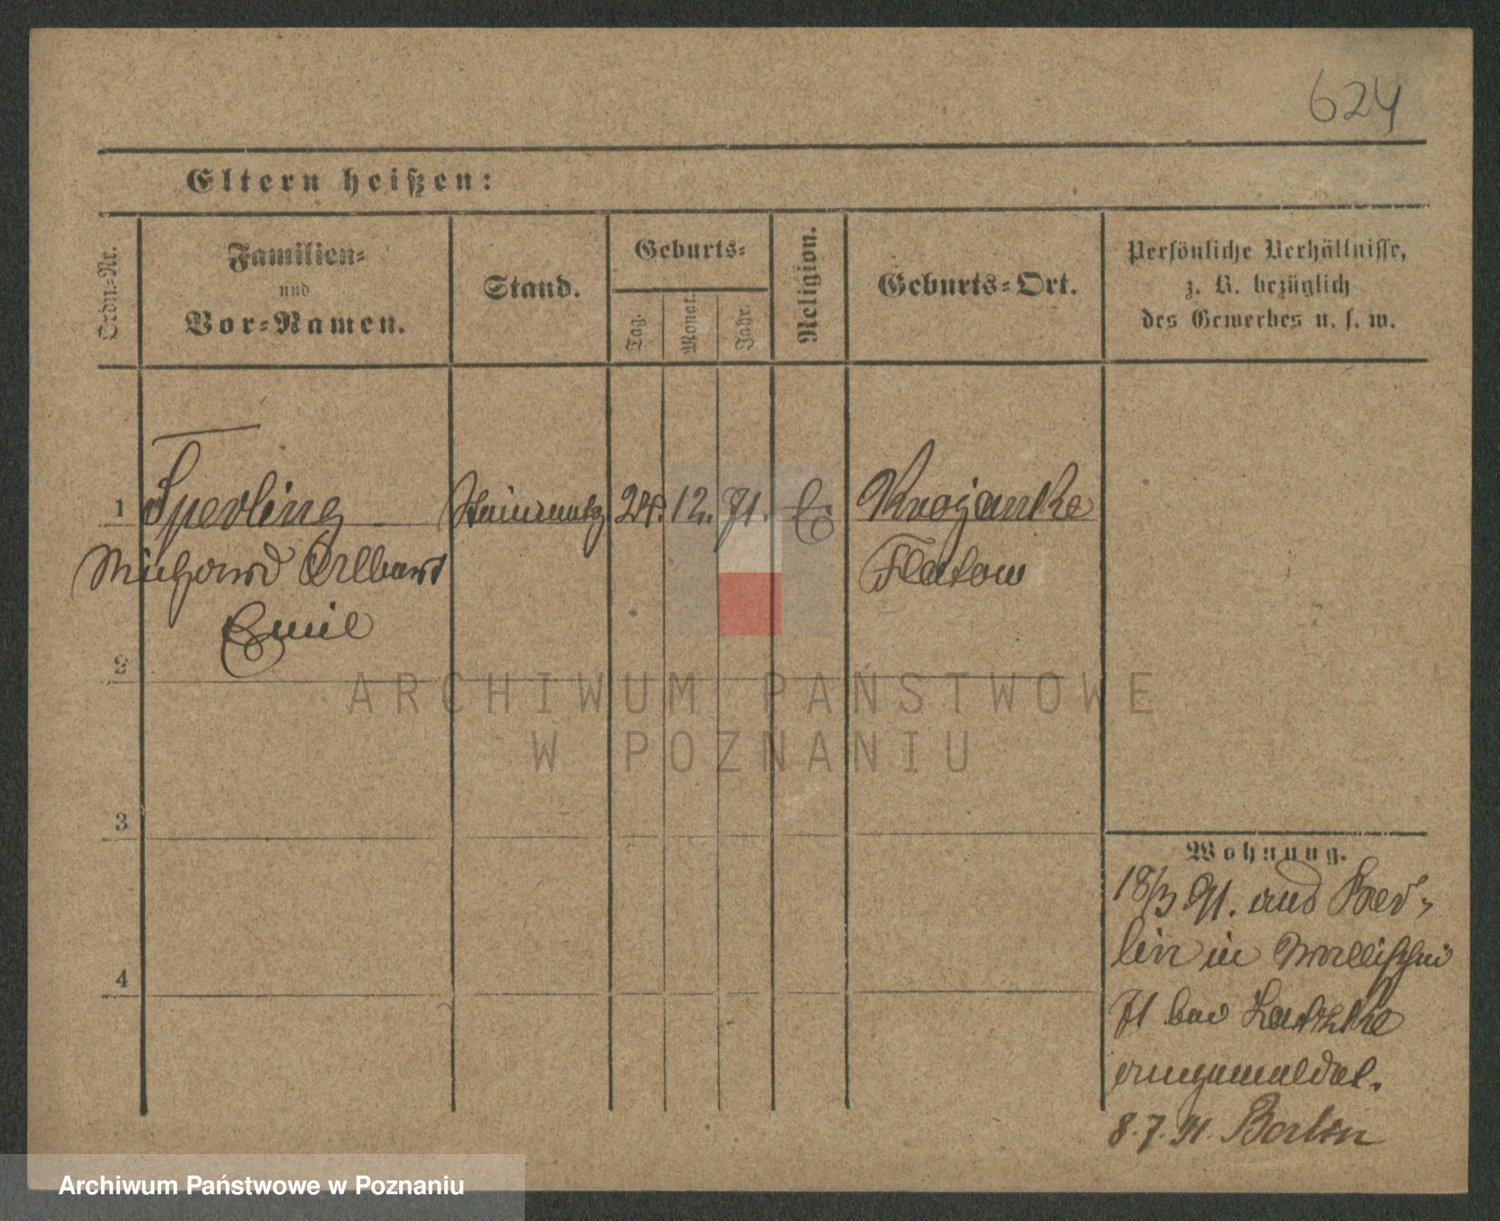 624
Eltern heißen:
Ordn.-Nr.
Familien-
und
Vor-Namen.
Stand.
Geburts-
Tag.
Monat.
Jahr.
Religion.
Geburts-Ort.
Persönliche Verhältnisse,
z. B. bezüglich
des Gewerbes u. s. w.
1 Sperling 24. 12. 71. E Krojanke
Richard Albert Flatow
Emil
2
3
4
Wohnung.
18/3 91. aus Ber-
lin in Wallischei
71 bei Latzke
angemeldet.
8.7.91. Berlin
ARCHIWUM PAŃSTWOWE
W POZNANIU
Archiwum Państwowe w Poznaniu